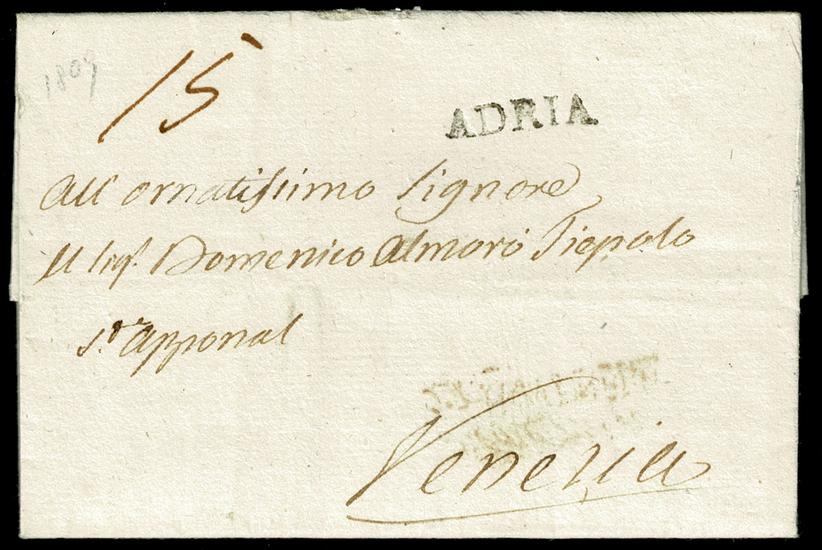 1809
15
ADRIA
All' ornatissimo Signore
Il Sigr. Domenico Almorò Tiepolo
Sn. Apponal
Venezia